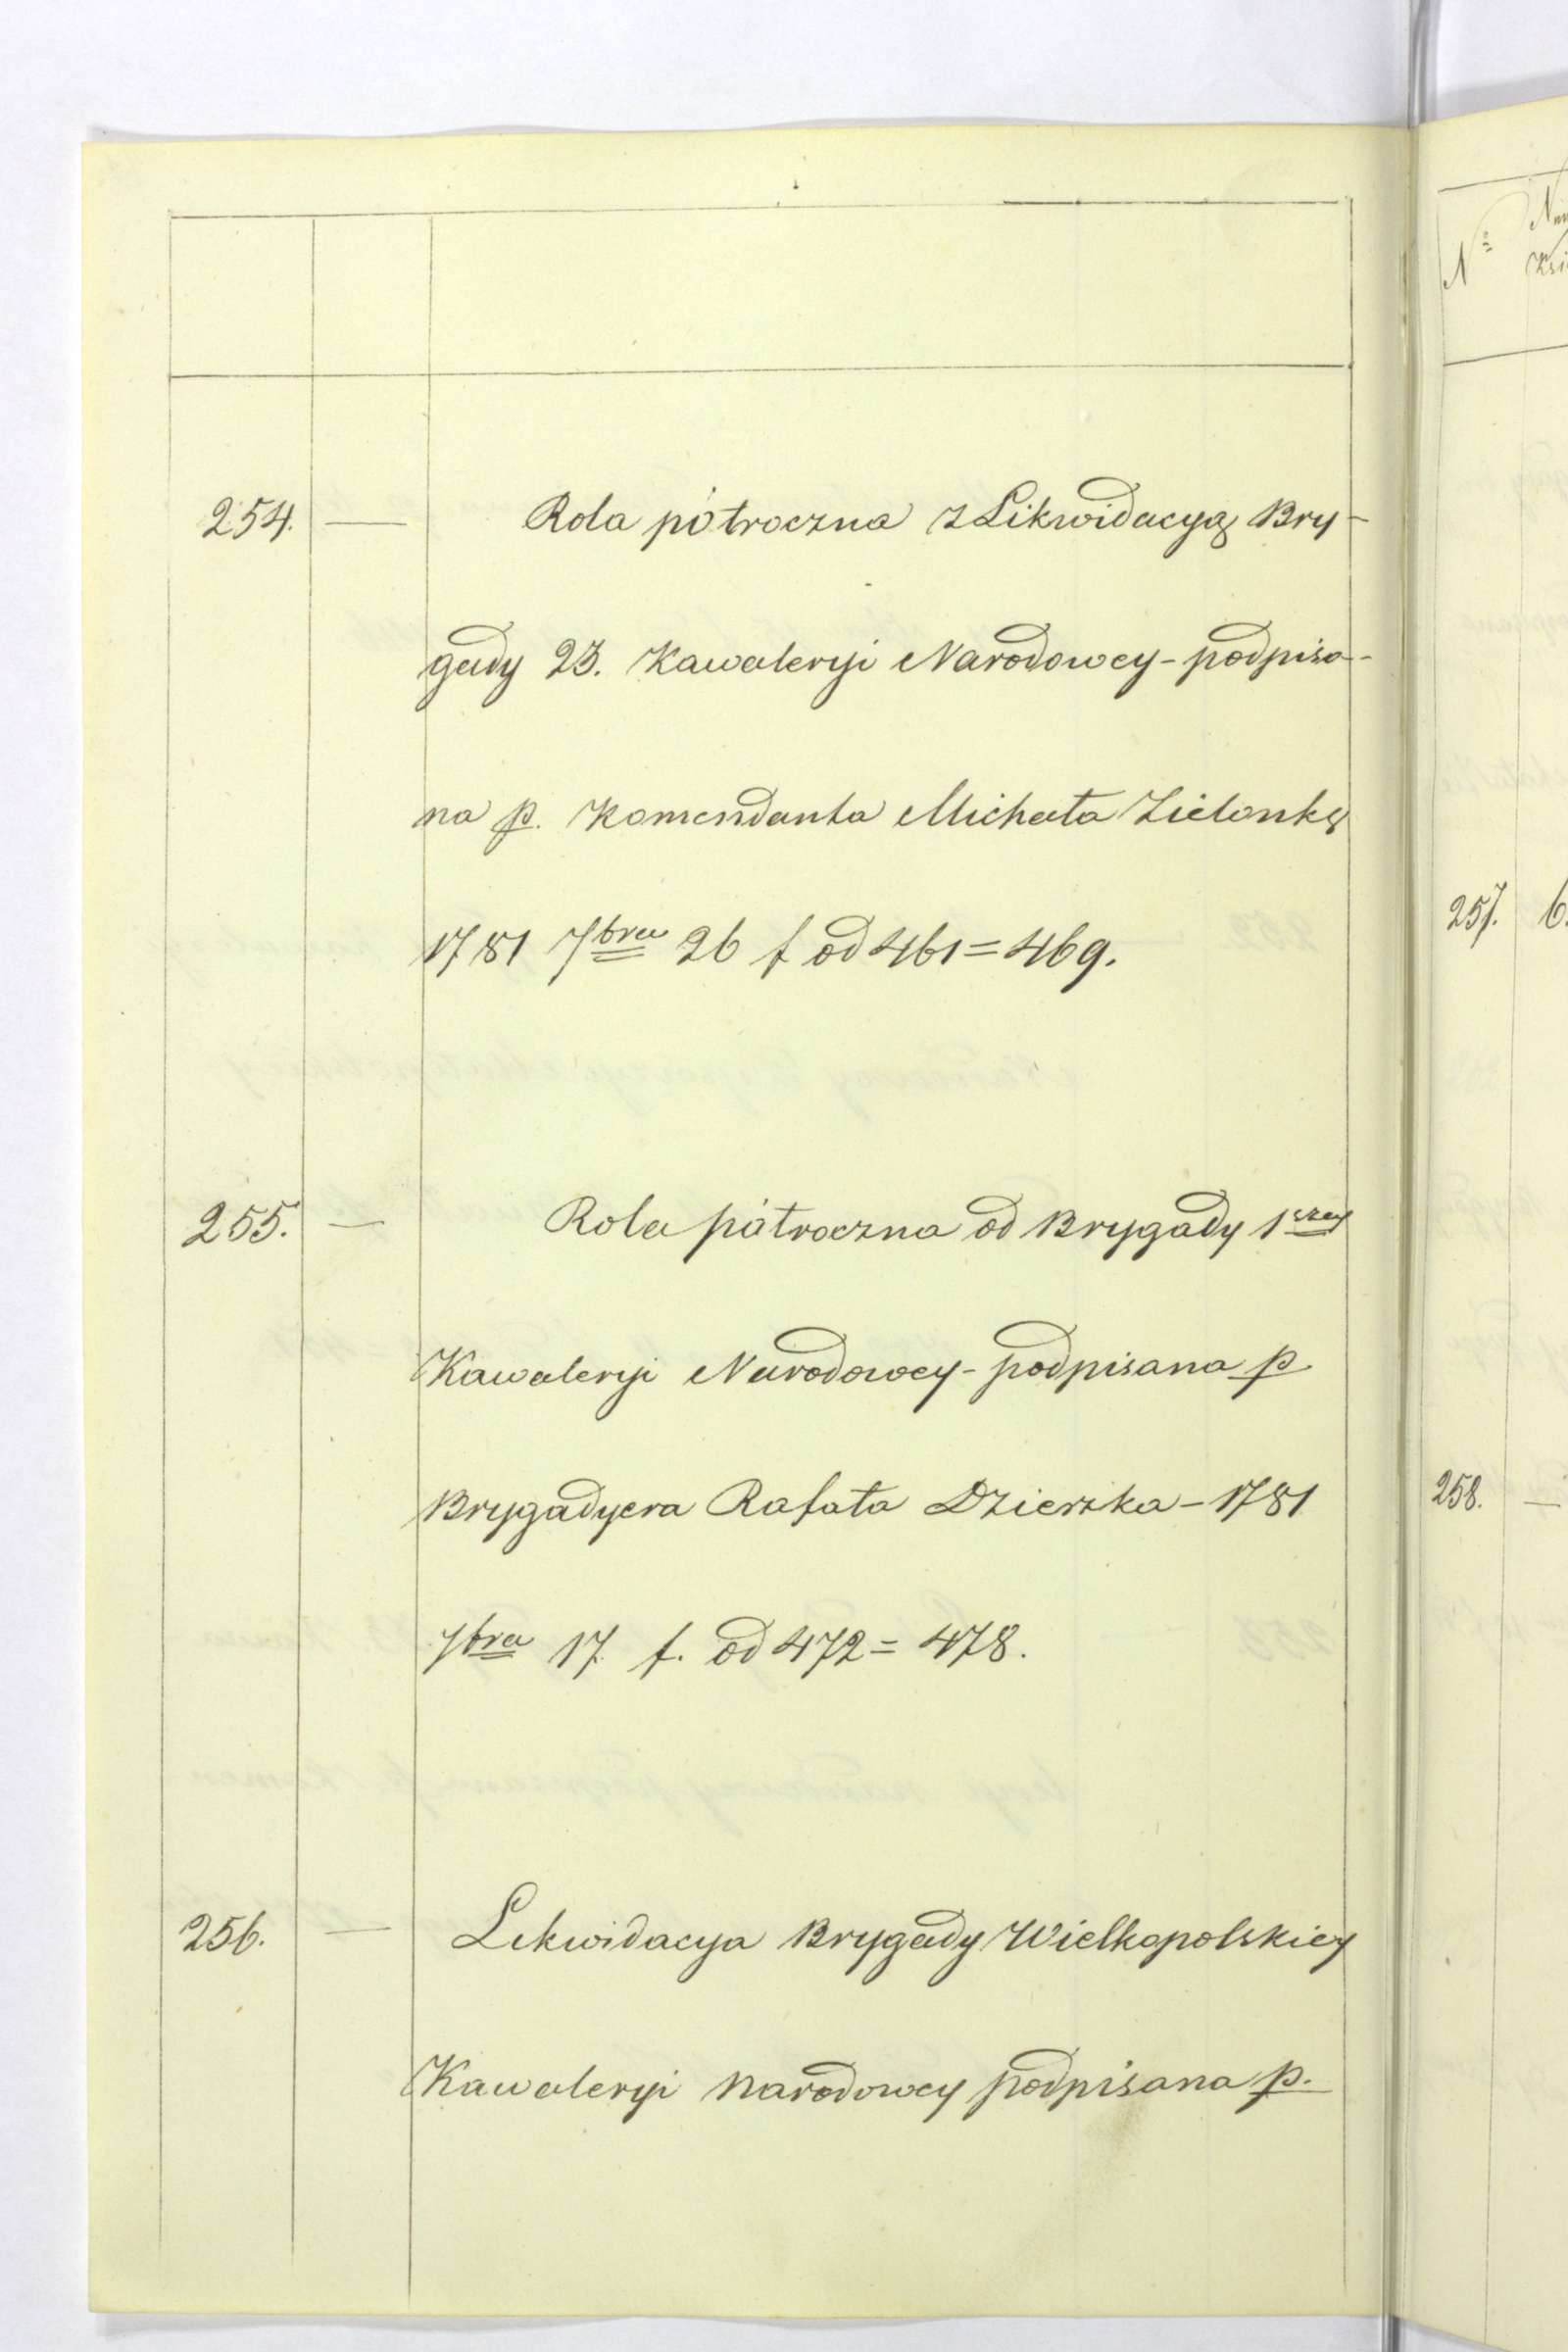 254. — Rola półroczna z Likwidacyą Bry-
gady 23. Kawaleryi Narodowey - podpisa-
na p. Komendanta Michała Zielonkę
1781 7bra 26 f od 461 = 469.
255. — Rola półroczna od Brygady 1szey
Kawaleryi Narodowey - podpisana p
Brygadyera Rafała Dzierzka - 1781
7bra 17 f. od 472 = 478.
256. — Likwidacya Brygady Wielkopolskiey
Kawaleryi narodowey podpisana p.
Nº
257. 6.
258. —